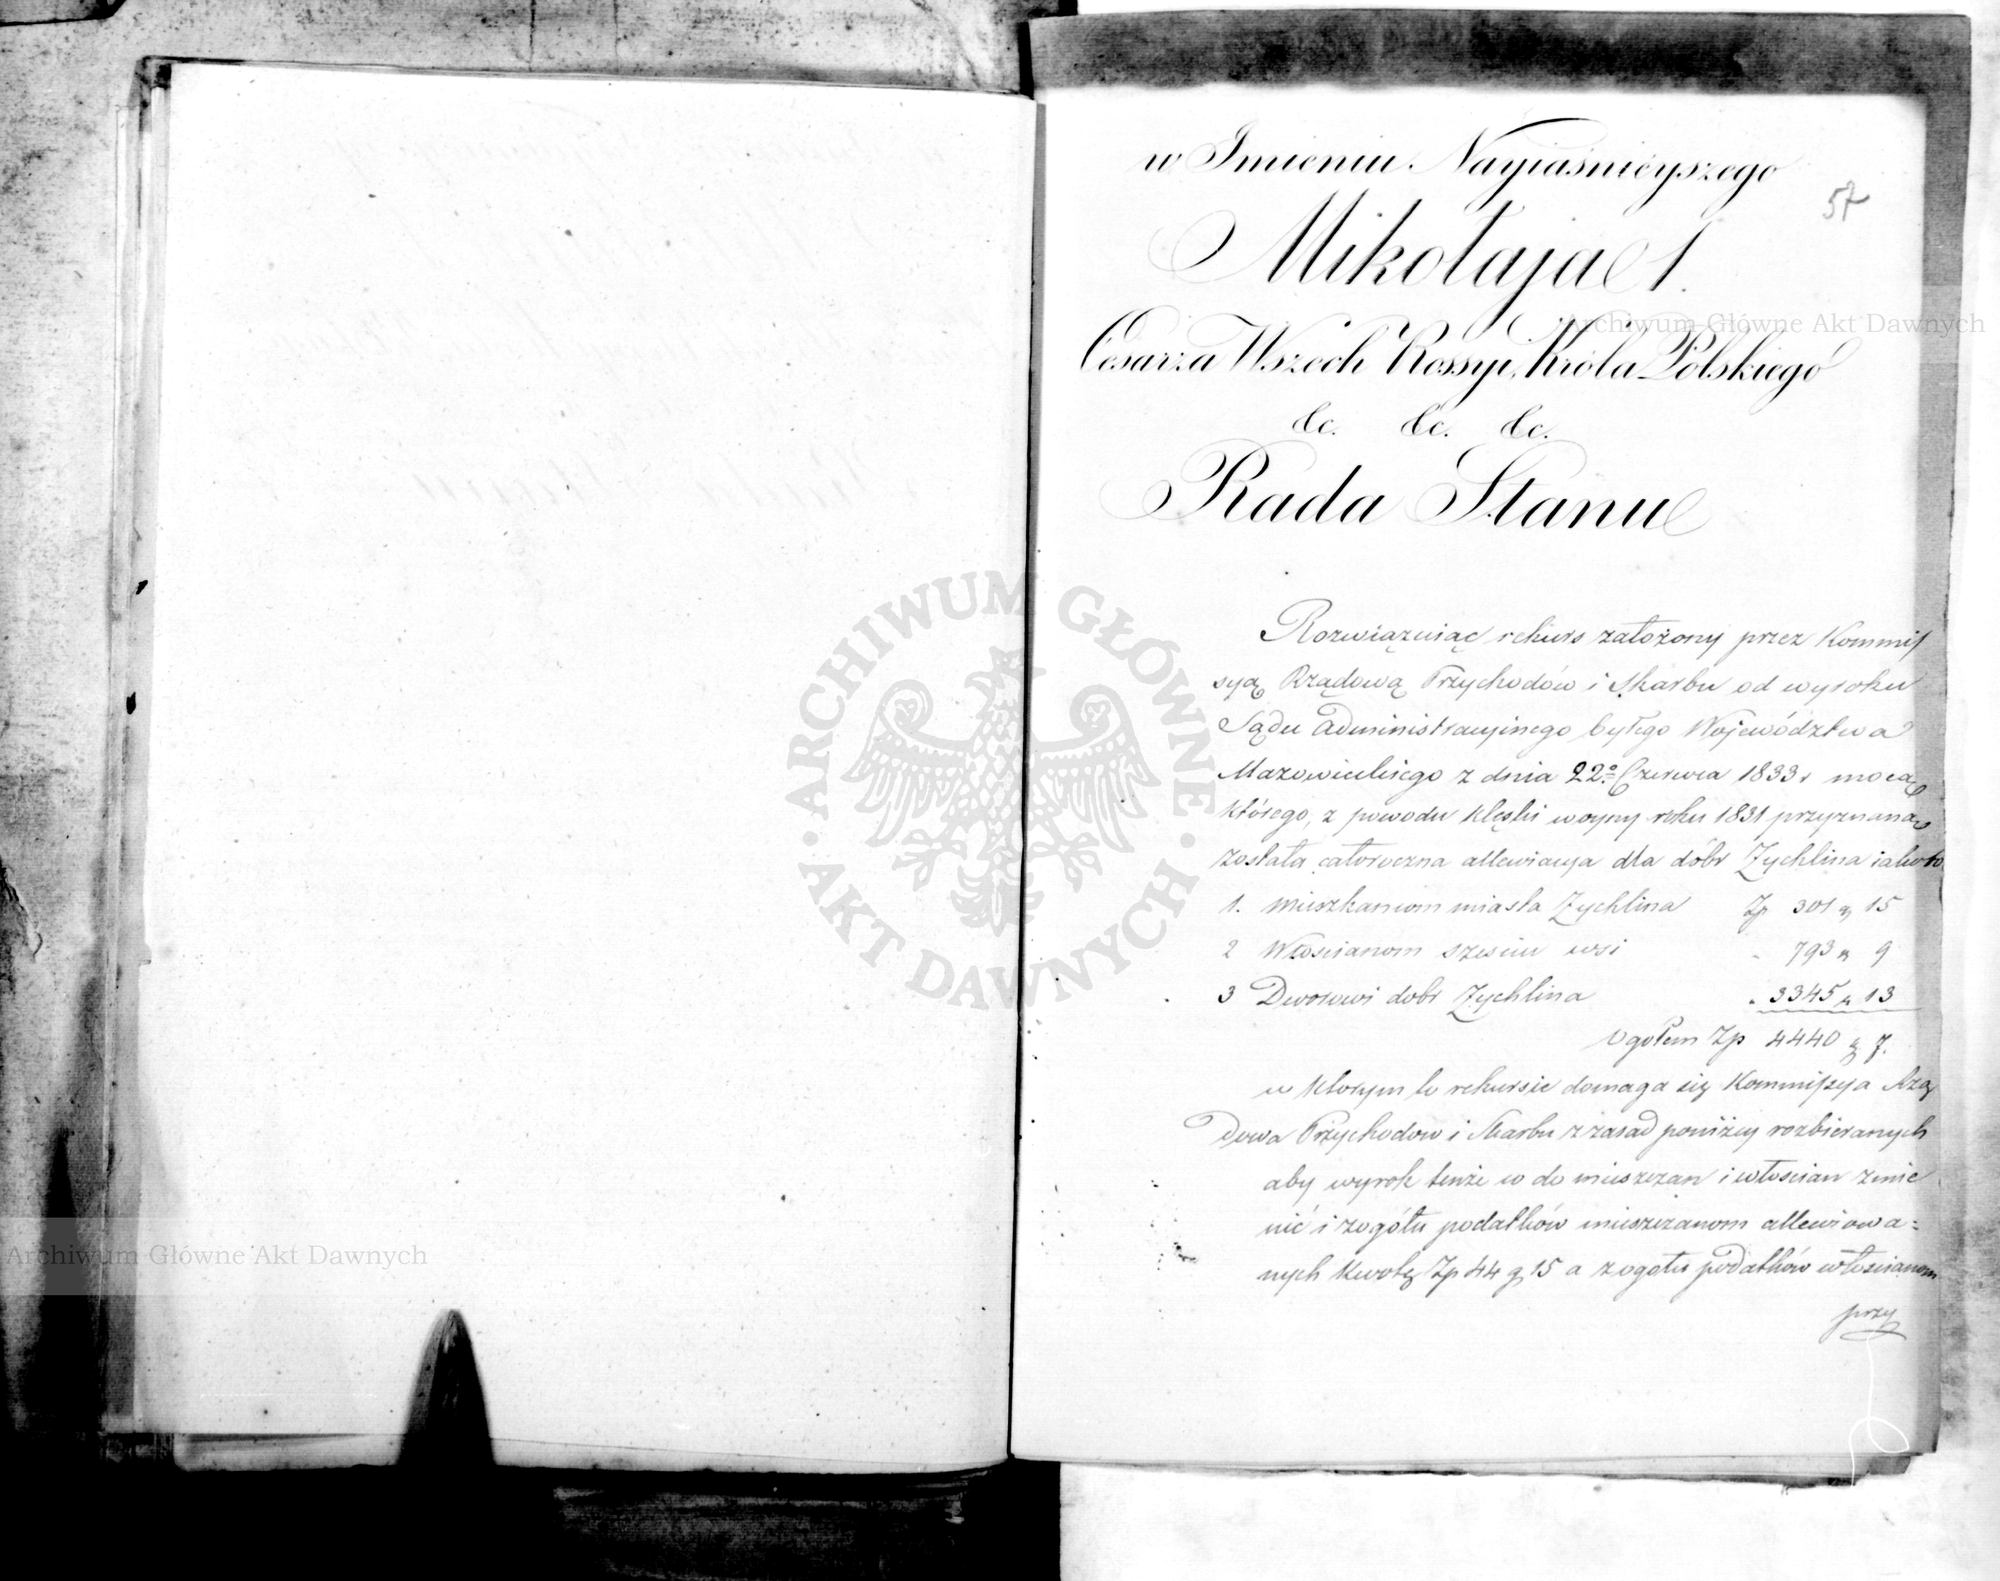 w Imieniu Nayiaśnieyszego
57
Mikołaja 1.
Cesarza Wszech Rossyi, Króla Polskiego
&c. &c. &c.
Rada Stanu
Rozwiązuiąc rekurs założony przez Kommis
syą Rządową Przychodów i Skarbu od wyroku
Sądu Administracyinego byłego Województwa
Mazowieckiego z dnia 22º Czerwca 1833 r mocą
którego, z powodu klęski woyny roku 1831 przyznana
została całoroczna allewiacya dla dóbr Zychlina iakoto
1. Mieszkańcom miasta Zychlina Zp 301 g 15
2 Włościanom sześciu wsi " 793 g 9
3 Dworowi dobr Zychlina " 3345 g 13
Ogółem Zp 4440 g 7.
w którym to rekursie domaga się Kommissya Rzą
dowa Przychodow i Skarbu z zasad poniżey rozbieranych
aby wyrok tenże co do mieszczan i włościan zmie
nić i zogółu podatków mieszczanom allewiowa=
nych kwotę Zp 44 g 15 a zogołu podatków włościanom
przy
ARCHIWUM GŁÓWNE
AKT DAWNYCH
Archiwum Główne Akt Dawnych
Archiwum Główne Akt Dawnych